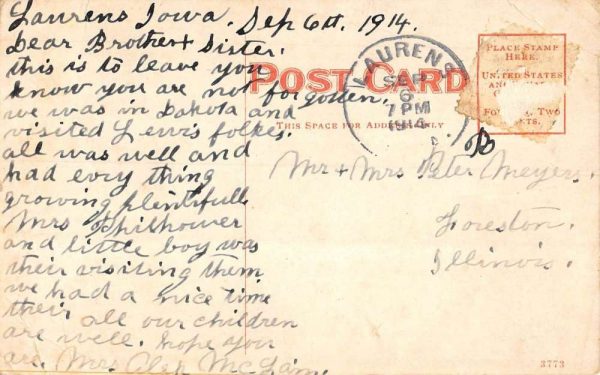 Laurens Iowa. Sep 6th. 1914.
Dear Brother & Sister.
this is to leave you
know you are not forgotten.
we was in Dakota and
visited Lewis folkes.
all was well and
had evry thing
growing plentifull.
Mrs Philhower
and little boy was
their visiting them
we had a nice time
their all our children
are well. hope you
are. Mrs. Alex McLain.
POST CARD
THIS SPACE FOR ADDRESS ONLY
LAURENS
SEP
6
7 PM
1914
PLACE STAMP
HERE.
UNITED STATES
TWO
3773
Mr & Mrs Peter Meyers.
Foreston.
Illinois.